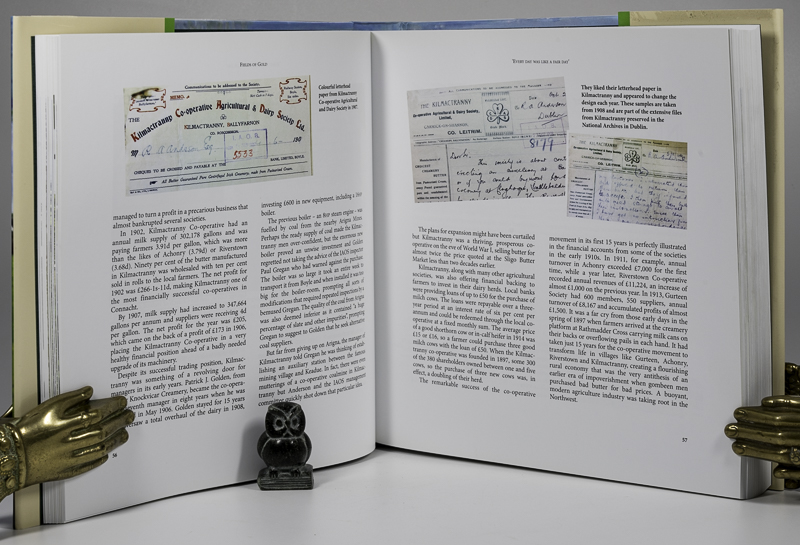 FIELDS OF GOLD
Communications to be addressed to the Society.
MEMO.
THE
Kilmactranny Co-operative Agricultural & Dairy Society Ltd.
KILMACTRANNY, BALLYFARNON
CO. ROSCOMMON.
M R. A. Anderson Esq
5533
190
CHEQUES TO BE CROSSED AND PAYABLE AT THE
BANK, LIMITED, BOYLE.
All Butter Guaranteed Pure Centrifugal Irish Creamery, made from Pasteurised Cream.
Colourful letterhead
paper from Kilmactranny
Co-operative Agricultural
and Dairy Society in 1907.
managed to turn a profit in a precarious business that
almost bankrupted several societies.
In 1902, Kilmactranny Co-operative had an
annual milk supply of 302,178 gallons and was
paying farmers 3.91d per gallon, which was more
than the likes of Achonry (3.79d) or Riverstown
(3.68d). Ninety per cent of the butter manufactured
in Kilmactranny was wholesaled with ten per cent
sold in rolls to the local farmers. The net profit for
1902 was £266-1s-11d, making Kilmactranny one of
the most financially successful co-operatives in
Connacht.
By 1907, milk supply had increased to 347,664
gallons per annum and suppliers were receiving 4d
per gallon. The net profit for the year was £205,
which came on the back of a profit of £173 in 1906,
placing the Kilmactranny Co-operative in a very
healthy financial position ahead of a badly needed
upgrade of its machinery.
Despite its successful trading position, Kilmac-
tranny was something of a revolving door for
managers in its early years. Patrick J. Golden, from
Knockvicar Creamery, became the co-opera-
seventh manager in eight years when he was
in May 1906. Golden stayed for 15 years
oversaw a total overhaul of the dairy in 1908,
investing £600 in new equipment, including a
boiler.
The previous boiler – an 8hp steam engine – was
fuelled by coal from the nearby Arigna Mines.
Perhaps the ready supply of coal made the Kilmac-
tranny men over-confident, but the enormous new
boiler proved an unwise investment and Golden
regretted not taking the advice of the IAOS inspector
Paul Gregan who had warned against the purchase.
The boiler was so large it took an entire week to
transport it from Boyle and when installed it was too
big for the boiler-room, prompting all sorts of
modifications that required repeated inspections by a
bemused Gregan. The quality of the coal from Arigna
was also deemed inferior as it contained "a huge
percentage of slate and other impurities", prompting
Gregan to suggest to Golden that he seek alternative
coal suppliers.
But far from giving up on Arigna, the manager of
Kilmactranny told Gregan he was thinking of estab-
lishing an auxiliary station between the famous
mining village and Keadue. In fact, there were even
mutterings of a co-operative coalmine in Kilmac-
tranny but Anderson and the IAOS management
committee quickly shut down that particular idea.
56
'EVERY DAY WAS LIKE A FAIR DAY'
THE KILMACTRANNY
Co-operative Agricultural & Dairy Society,
Limited,
CO. LEITRIM.
R A Anderson
Dublin
8177
THE KILMACTRANNY
They liked their letterhead paper in
Kilmactranny and appeared to change the
design each year. These samples are taken
from 1908 and are part of the extensive files
from Kilmactranny preserved in the
National Archives in Dublin.
The plans for expansion might have been curtailed
but Kilmactranny was a thriving, prosperous co-
operative on the eve of World War I, selling butter for
almost twice the price quoted at the Sligo Butter
Market less than two decades earlier.
Kilmactranny, along with many other agricultural
societies, was also offering financial backing to
farmers to invest in their dairy herds. Local banks
were providing loans of up to £50 for the purchase of
milk cows. The loans were repayable over a three-
year period at an interest rate of six per cent per
annum and could be redeemed through the local co-
operative at a fixed monthly sum. The average price
of a good shorthorn cow in-calf heifer in 1914 was
£15 or £16, so a farmer could purchase three good
milk cows with the loan of £50. When the Kilmac-
tranny co-operative was founded in 1897, some 300
of the 380 shareholders owned between one and five
cows, so the purchase of three new cows was, in
effect, a doubling of their herd.
The remarkable success of the co-operative
movement in its first 15 years is perfectly illustrated
in the financial accounts from some of the societies
in the early 1910s. In 1911, for example, annual
turnover in Achonry exceeded £7,000 for the first
time, while a year later, Riverstown Co-operative
recorded annual revenues of £11,224, an increase of
almost £1,000 on the previous year. In 1913, Gurteen
Society had 600 members, 550 suppliers, annual
turnover of £8,167 and accumulated profits of almost
£1,500. It was a far cry from those early days in the
spring of 1897 when farmers arrived at the creamery
platform at Rathmadder Cross carrying milk cans on
their backs or overflowing pails in each hand. It had
taken just 15 years for the co-operative movement to
transform life in villages like Gurteen, Achonry,
Riverstown and Kilmactranny, creating a flourishing
rural economy that was the very antithesis of an
earlier era of impoverishment when gombeen men
purchased bad butter for bad prices. A buoyant,
modern agriculture industry was taking root in the
Northwest.
57